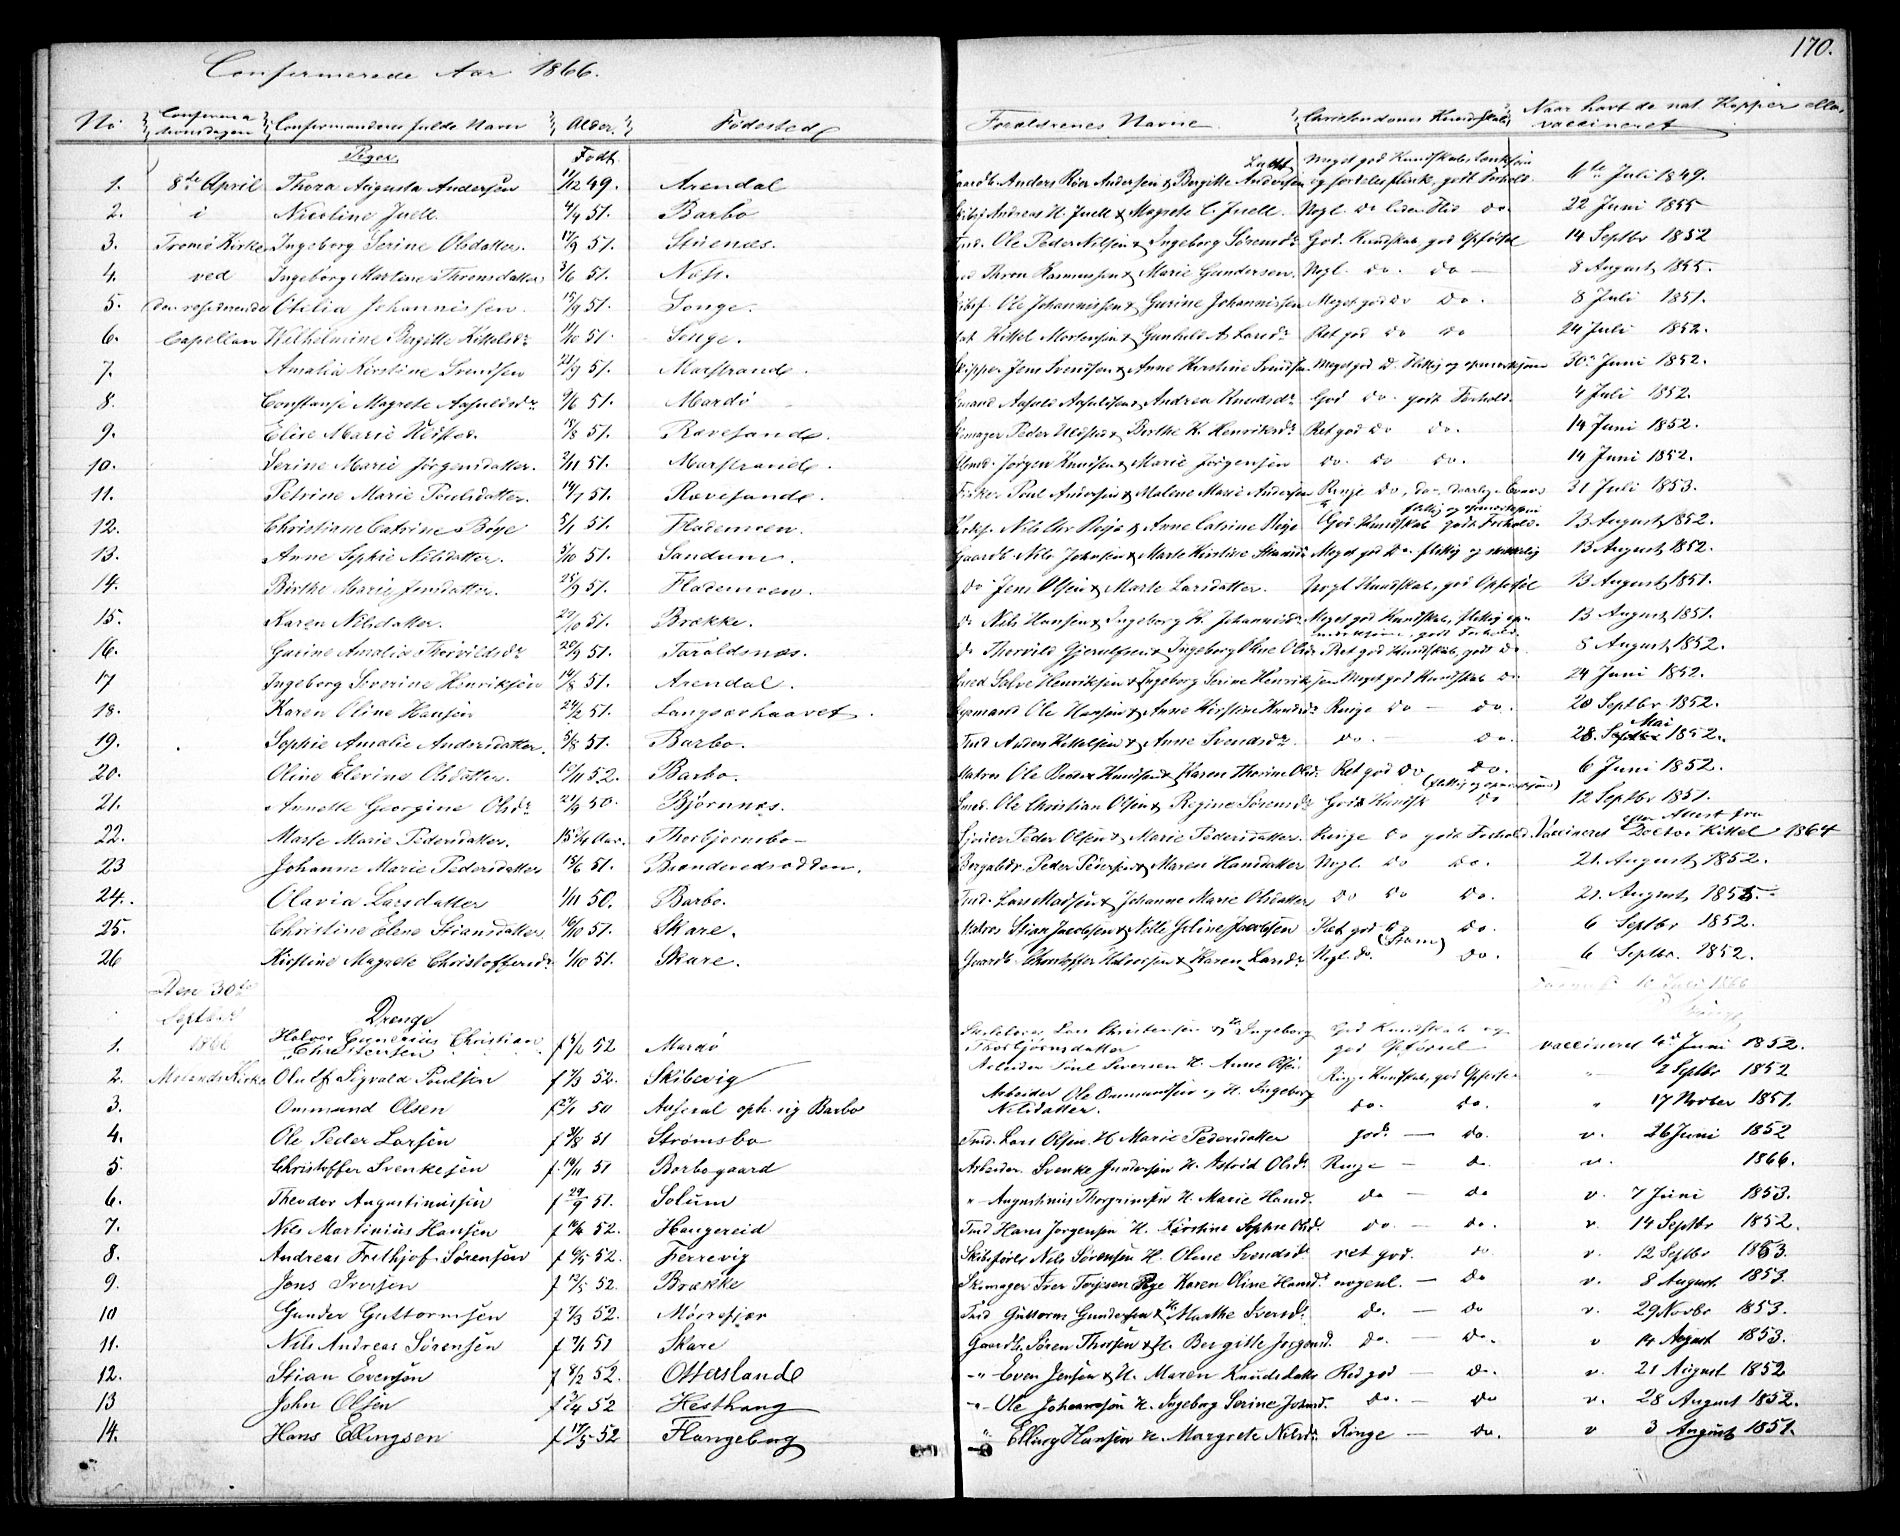 170.
Confirmerede Aar 1866.
No Confirmationsdagen Confirmandernes fulde Navn Alder. Fødested Forældrenes Navne Christendoms Kundskab Naar havt de nat. Kopper eller vaccineret
Piger Født
1. 8de April Thora Augusta Andersen 11/12 49. Arendal Anders Andersen & Birgitte Andersen 4de Juli 1849.
2. i Nicoline Juell 4/4 51. Barbo Andreas H. Juell & Magrete C. Juell Nogl. do liden Flid do. 22 Juni 1855
3. Tromø Kirke Ingeborg Serine Olsdatter. 17/9 51. Stuenæs. Ole Peder Nilsen & Ingeborg Sørensdr. God. Kundskab god Opførsel 14 Septbr 1852
4. ved Ingeborg Martine Thronsdatter 3/6 51. Næs. Thron Rasmussen & Marie Gundersen. Nogl. do. do — 8 August 1855.
5. den residerende Otilia Johannisen. 15/9 51. Songe. Ole Johannissen & Gurine Johannissen Meget god do do. 8 Juli 1851.
6. Capellan Wilhelmine Birgitte Kittelsdr. 11/10 51. Songe. Kittel Mortensen & Gunhild A. Larsdr. Ret god do do 24 Juli 1852.
7. Amalia Kirstine Svendsen 21/9 51. Marstrand. Skipper Jens Svendsen & Anne Kirstine Svendsen Meget god do. flittig og opmerksom 30te Juni 1852.
8. Constanse Magrete Aasuldsdr. 9/6 51. Mardø Aasuld Aasuldsen & Andrea Knudsdr. God do. godt Forhold. 4 Juli 1852.
9. Elise Marie Uldstad. 15/8 51. Rævesand. Peder Uldstad & Birthe H. Henriksdr. Ret god do do. 14 Juni 1852.
10. Serine Marie Jørgensdatter. 2/11 51. Marstrand. Jørgen Knudsen & Marie Jørgensen do. do do. 14 Juni 1852.
11. Petrine Marie Poulsdatter. 14/7 51. Rævesand. Fisker Poul Andersen & Malene Marie Andersen Ringe do, do 31 Juli 1853.
12. Christiane Catrine Bøye 5/1 51. Flademoen. Anne Catrine Bøye God Kundskab godt Forhold. 13 August 1852.
13. Anne Sophie Nilsdatter. 3/10 51. Sandum. Gaardb. Nils Johnsen & Marte Kirstine Meget god do. flittig og 13 August 1852.
14. Birthe Marie Jensdatter. 25/9 51. Flademoen. do Jens Olsen & Marte Larsdatter. Nogl Kundskab, god Opførsel 13 August 1851.
15. Karen Nilsdatter. 27/10 51. Brække. do Nils Hansen & Ingeborg K. Johannisdr. Meget god Kundskab, flittig opmerksom, godt Forhold. 13 August 1851.
16. Gurine Amalia Thorvildsdr. 20/9 51. Taraldsnæs. do Thorvild Gjerulfsen & Ingeborg Oline Olsdr. Ret god Kundskab, godt do. 8 August 1852.
17 Ingeborg Severine Henriksen 14/8 51. Arendal. Sælve Henriksen & Ingeborg Serine Henriksen Meget god Kundskab do. 24 Juni 1852.
18. Karen Oline Hansen 24/2 51. Langsæhaavet. Ole Hansen & Anne Kirstine Ringe do — do. 20 Septbr 1852.
19. Sophie Amalie Andersdatter. 5/8 51. Barbo. Anders Kittelsen & Anne Svendsdr. do. — do. 28. Mai 1852.
20. Oline Elevine Olsdatter. 15/11 52. Barbo. Matros Ole Knudsen & Karen Thorine Olsdr. Ret god do do. 6 Juni 1852.
21. Annette Georgine Olsdr. 27/9 50. Bjørnnæs. Ole Christian Olsen & Regine Sørensdr. Godt Kundsk (flittig og opmerksom) do 12 Septbr 1851.
22. Marte Marie Pedersdatter. 15 3/4 Aar. Thorbjørnsbo — Peder Olsen & Marie Pedersdatter. Ringe do godt Forhold. Vaccineret efter Attest fra Doctor Kittel 1864
23 Johanne Marie Pedersdatter 15/6 51. Brendevedsodden. Peder & Maren Hansdatter Nogl. do do. 21. August 1852.
24. Olavia Larsdatter 1/11 50. Barbo. Ind. Lars Madsen & Johanne Marie Olsdatter do do do. 21. August 1855.
25. Christine Elene Stiansdatter 16/10 51. Skare. Matros Stian Jacobsen & Jacobsen Ret god do do. 6 Septbr 1852.
26 Kirstine Magrete Christoffersdr. 1/10 51. Skare. Gaardb. Christoffer Halvorsen & Karen Larsdr. Nogl. do. (svam) do. 6 Septbr. 1852.
Den 30te Septbr 1866 Drenge 10 Juli 1866
1. Halvor Gunerius Christian Christensen f 5/2 52 Mardø Lars Christensen & H. Ingeborg Thorbjørnsdatter God Kundskab og god Opførsel vaccineret 4de Juni 1852.
2. Molands Kirke Oluf Sigvald Poulsen f 7/3 52. Skibevig Arbeider Poul Seversen H. Anne Olsd. Ringe Kundskab, god Opførsel " 2 Septbr 1852
3. Ommund Olsen f 27/1 50 Auseral oph. sig Barbo Arbeider Ole Ommundsen og H. Ingeborg Nilsdatter. do. do. " 17 Novber 1851.
4. Ole Peder Larsen f 31/8 51 Strømsbo Ind. Lars Olsen. H Marie Pedersdatter god. — do. v. 26 Juni 1852
5. Christoffer Svenkesen f. 19/11 51 Barbogaard Arbeider Svenke Gundersen H. Astrid Olsdr. Ringe — do. v. 1866.
6. Theodor Augustinussen f 29/9 51. Solum " Augustinus Thorgrimsen H. Marie Hansd. do — do v. 7 Juni 1853.
7. Nils Martinius Hansen f 10/6 52. Haugereid Ind Hans Jørgensen H. Kirstine Sophie Olsd. do. — do. v. 14 Septbr 1852.
8. Andreas Frithjof Sørensen f 6/5 52. Ferrevig Nils Sørensen H. Oline Svendsdr. ret god. do v. 12 Septbr 1853.
9. Jens Iversen f 12/5 52. Brække Iver Terjesen Pige Karen Oline Hansd. nogenl. — do v. 8 August 1853.
10 Gunder Guttormsen f 7/3 52. Mørrefjær Ind Guttorm Gundersen & H. Marthe Iversdr. do. — do v. 29 Novbr 1853.
11. Nils Andreas Sørensen f 7/1 51 Skare Gaardb. Søren Thorsen & H. Bergitte Jorgensd. do — do. v 14 August 1853.
12. Stian Evensen f 8/2 52. Otterslande -"- Even Jensen & H. Maren Knudsdatter Ret god — do. v. 21 August 1852
13 John Olsen f 2/4 52 Hesthang -"- Ole Johannesen H. Ingeborg Serine Johnsd. do. — do v. 28 August 1852.
14. Hans Ellingsen f 17/5 52 Flangeborg " Elling Hansen H. Margrete Nilsdr. Ringe — do. v 3 August 1851.